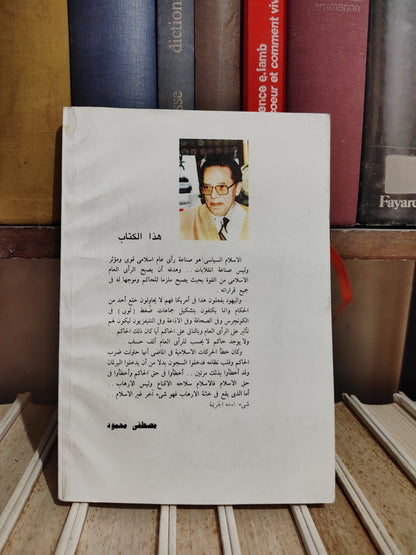 dictionn
sse
ence e.lamb
coeur et comment viv
Fayard
هذا الكتاب
الاسلام السياسى هو صناعة رأى عام اسلامى قوى ومؤثر
وليس صناعة انقلابات . . وهدفه أن يصبح الرأى العام
الاسلامى من القوة بحيث يصبح ملزما للحاكم وموجها له فى
جميع قراراته
واليهود يفعلون هذا فى أمريكا فهم لا يحاولون خلع أحد من
الحكام وانما يكتفون بتشكيل جماعات ضغط ( لوبى ) فى
الكونجرس وفى الصحافة وفى الاذاعة وفى التليفزيون ليكون لهم
تأثير على الرأى العام وبالتالى على الحاكم أيا كان ذلك الحاكم .
ولا يوجد حاكم لا يحسب للرأى العام ألف حساب .
وكان خطأ الحركات الاسلامية فى الماضى أنها حاولت ضرب
الحاكم وقلب نظامه فدخلوا السجون بدلا من أن يدخلوا البرلمان
وقد أخطأوا بذلك مرتين . . أخطأوا فى حق الحاكم وأخطأوا فى
حق الاسلام فالاسلام سلاحه الاقناع وليس الارهاب .
أما الذى يقع فى خانة الارهاب فهو شىء آخر غير الاسلام . .
شىء اسمه الجريمة
مصطفى محمود